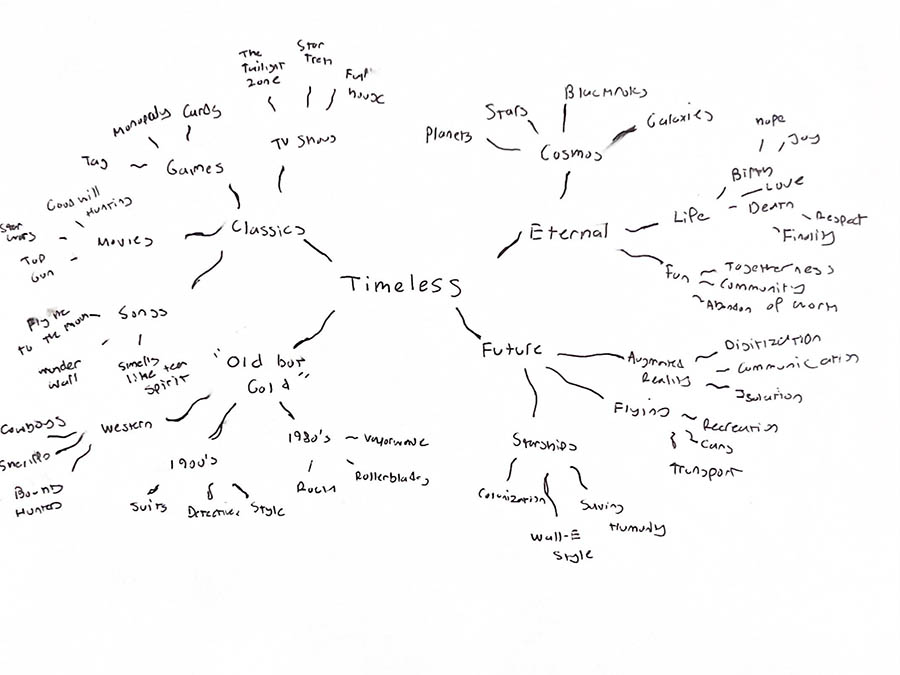 The
Twilight
Zone
Star
Trek
Full
house
Monopoly
Cards
Tag
Games
TV Shows
Good will
Hunting
Star
Wars
Top
Gun
Movies
Classics
Fly me
to the moon
Songs
wonder
wall
Smells
like teen
spirit
Timeless
"Old but
Gold"
Western
Cowboys
Bounty
Hunter
1900's
Suits
Detective
Style
1980's
Vaporwave
Rock
Rollerblades
Planets
Stars
Blackholes
Galaxies
Cosmos
Eternal
Life
Birth
Hope
Joy
Love
Death
Respect
Finality
Fun
Togetherness
Community
Abandon of worry
Future
Augmented
Reality
Digitization
Communication
Isolation
Flying
Recreation
Cars
Transport
Starships
Colonization
Wall-E
Style
Saving
Humanity